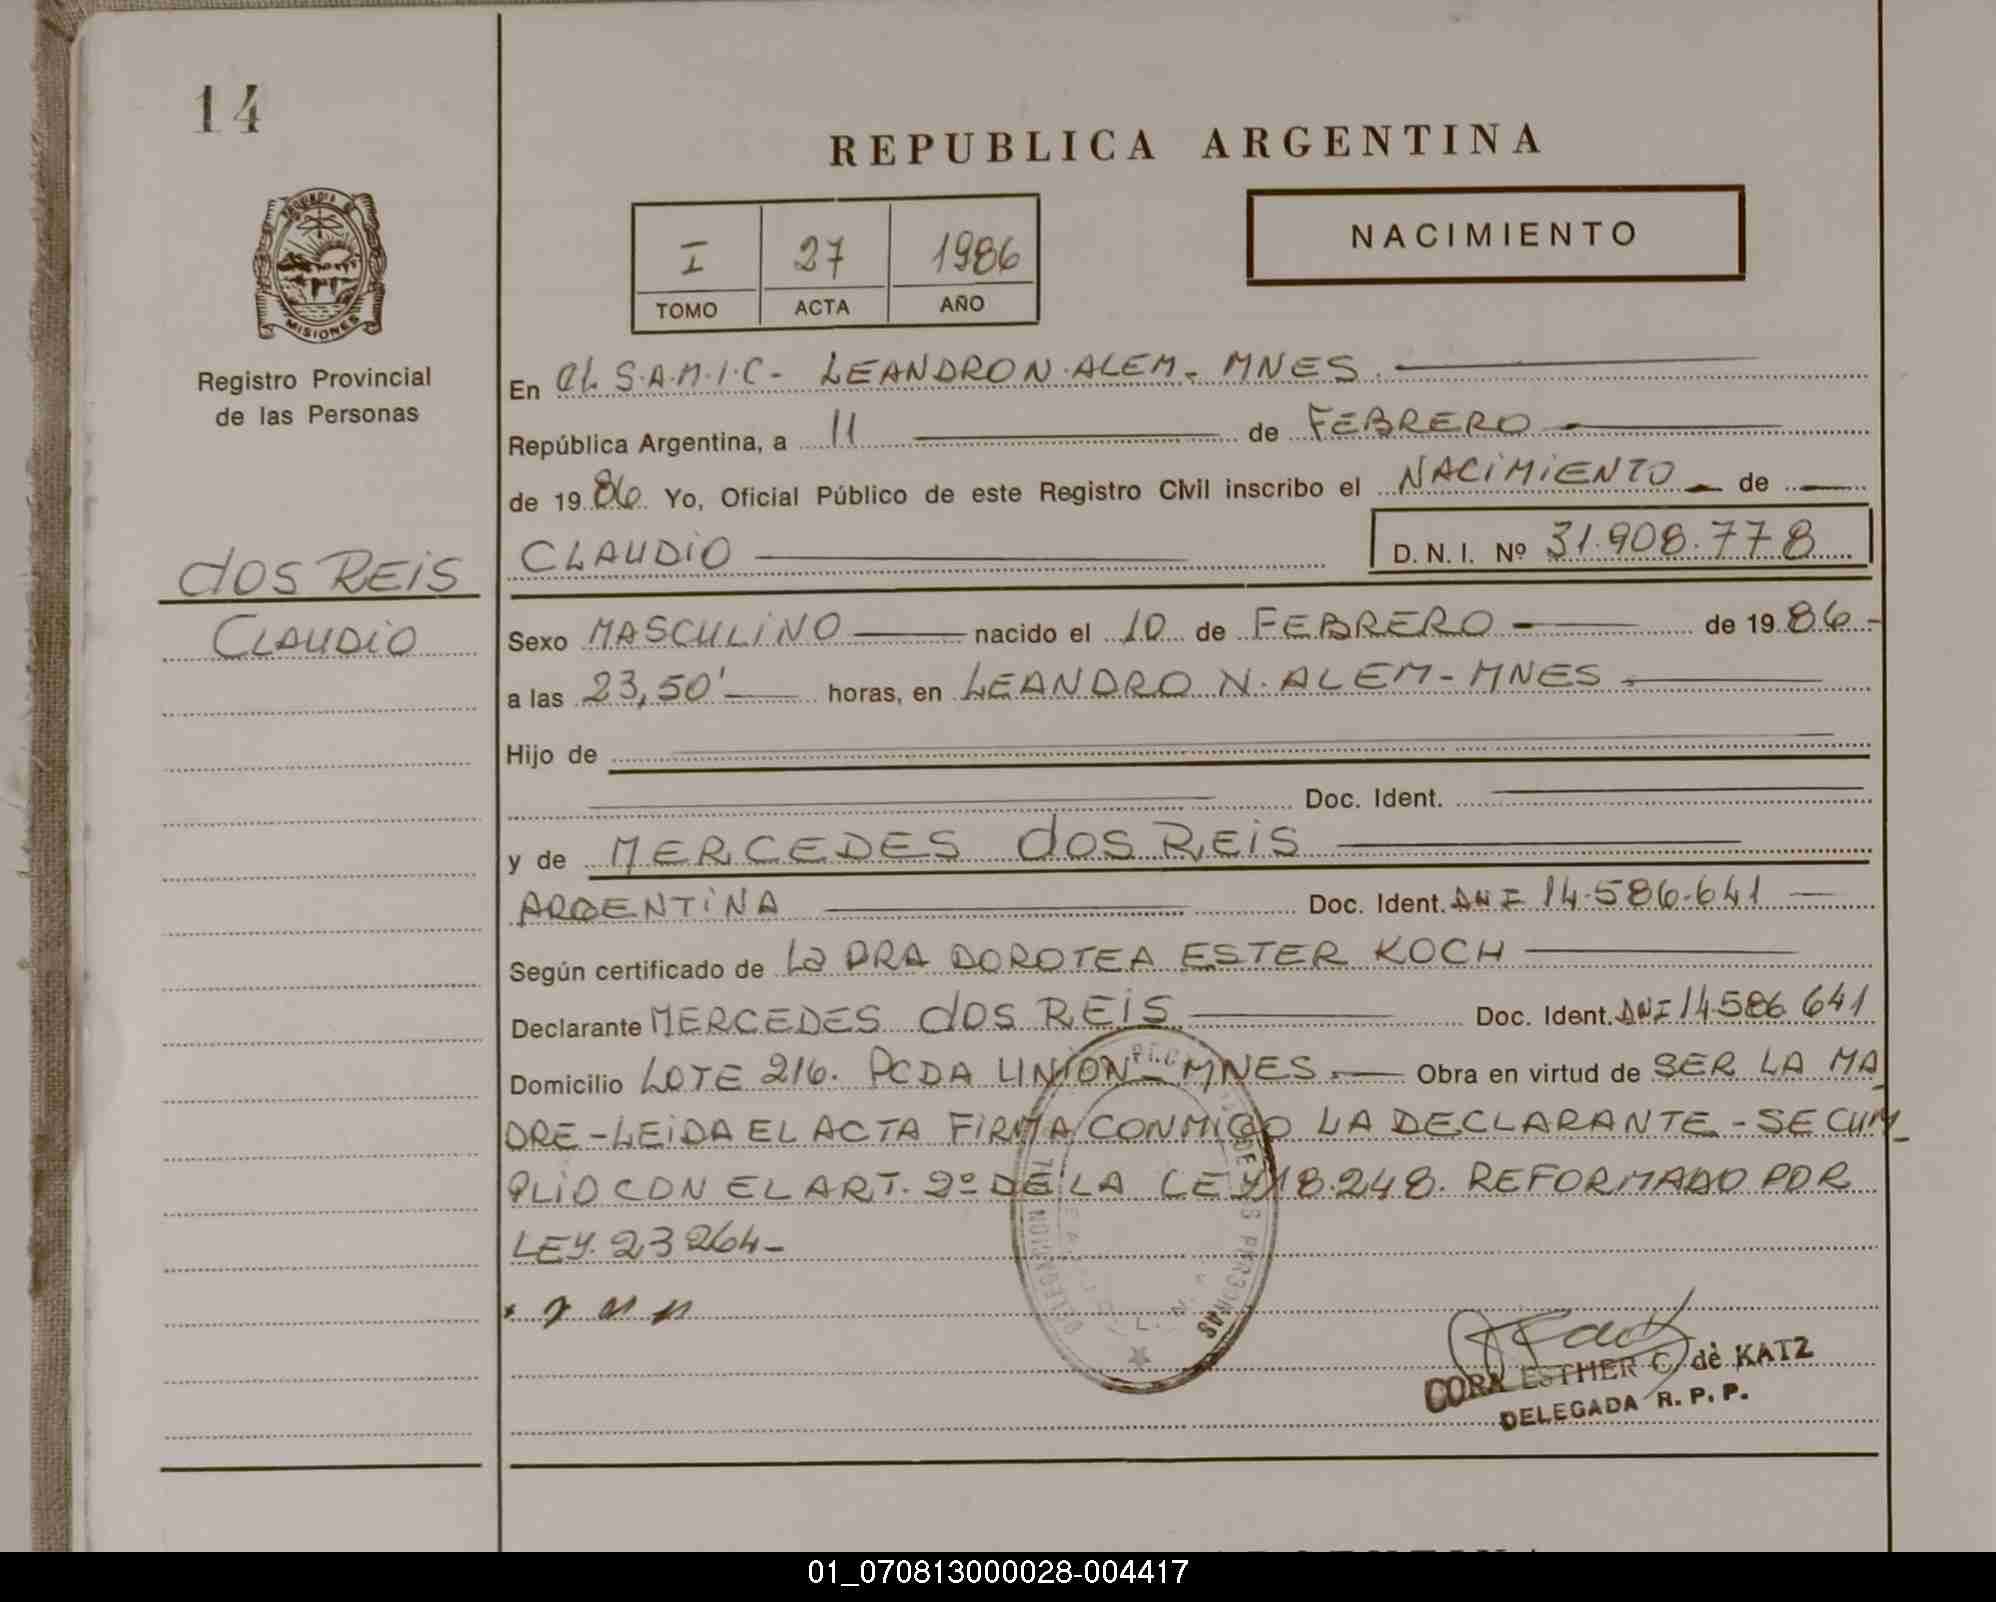 14
REPUBLICA ARGENTINA
NACIMIENTO
I 27 1986
TOMO ACTA AÑO
MISIONES
Registro Provincial
de las Personas
dos REIS
CLAUDIO
En EL S.A.M.I.C- LEANDRO N. ALEM - MNES.
República Argentina, a 11 de FEBRERO
de 1986 Yo, Oficial Público de este Registro Civil inscribo el NACIMIENTO de
CLAUDIO D. N. I. Nº 31.908.778
Sexo MASCULINO nacido el 10 de FEBRERO de 1986-
a las 23,50' horas, en LEANDRO N. ALEM - MNES
Hijo de
Doc. Ident.
y de MERCEDES dos REIS
ARGENTINA Doc. Ident. DNI 14.586.641
Según certificado de La DRA DOROTEA ESTER KOCH
Declarante MERCEDES dos REIS Doc. Ident. DNI 14586 641
Domicilio LOTE 216. PCDA UNION - MNES. Obra en virtud de SER LA MA
DRE - LEIDA EL ACTA FIRMA CONMIGO LA DECLARANTE - SE CUM_
PLIO CON EL ART. 2º DE LA LEY 18.248. REFORMADO POR
LEY. 23264-
CORA ESTHER C. de KATZ
DELEGADA R. P. P.
01_070813000028-004417